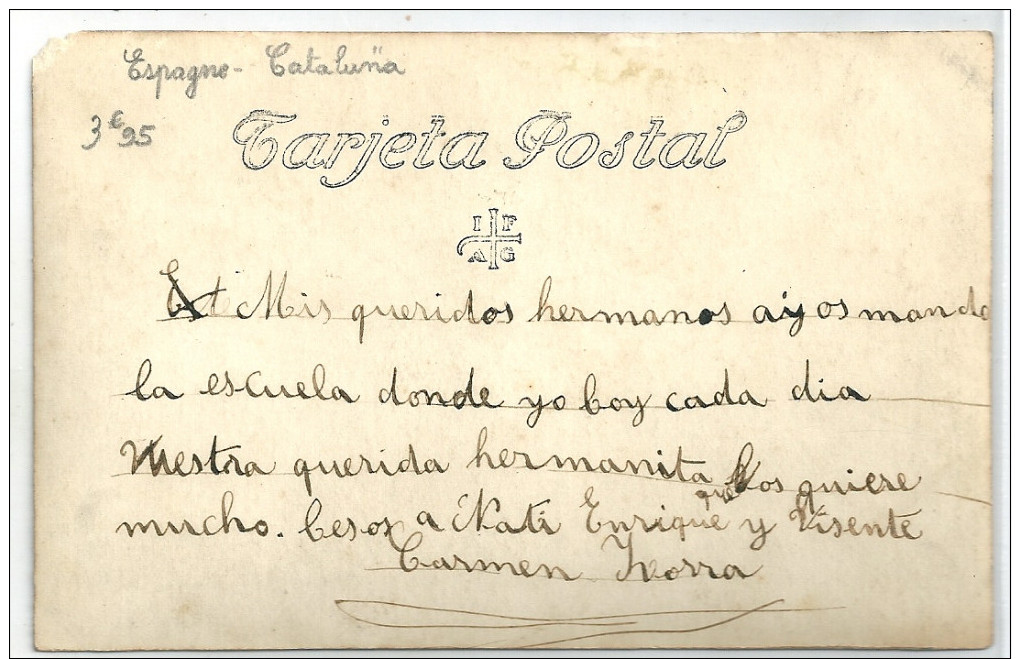 Espagne - Cataluña
3€95
Tarjeta Postal
I F
A G
Mis queridos hermanos aÿ os mando
la escuela donde yo boy cada dia
Vuestra querida hermanita
que os quiere
mucho. besos a Nati Enrique y Visente
Carmen Ivorra